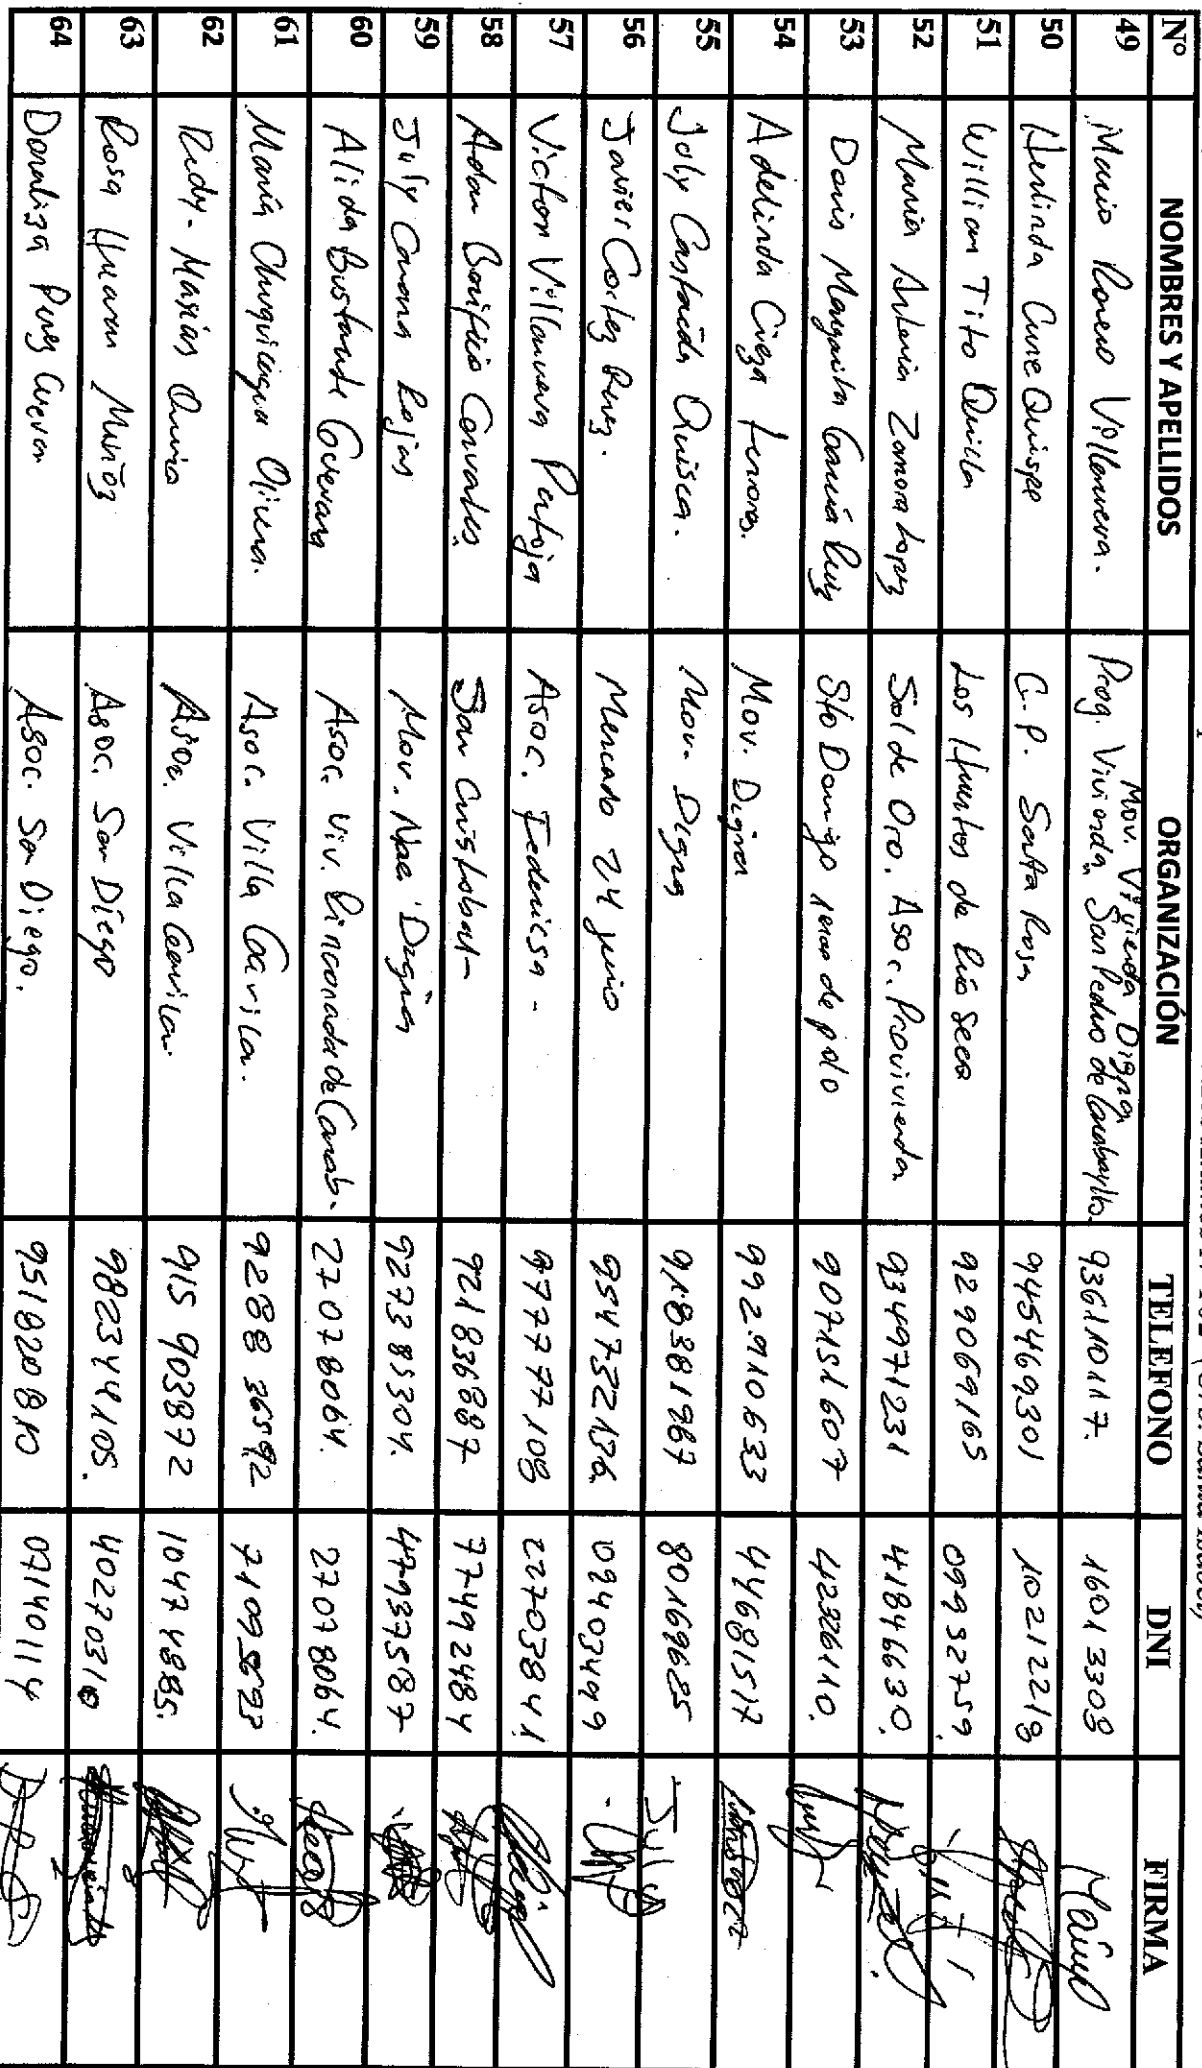 Nº NOMBRES Y APELLIDOS ORGANIZACIÓN TELEFONO DNI FIRMA
49 Mario Romero Villanueva. Mov. Vivienda Digna Prog. Vivienda San Pedro de Carabayllo. 936110117. 16013308
50 Herlinda Cune Quispe C.P. Santa Rosa 945469301 10212218
51 Willian Tito Quilla Los Huertos de Río Seco 929069165 09932759.
52 Maria Antonia Zamora Lopez Sol de Oro. Asoc. Provivienda 934971231 41846630.
53 Doris Margarita García Ruiz Sto Domigo de polo 907151607 42326110.
54 Adelinda Cieza Mov. Digna 992910633 44681517
55 July Castañeda Quisca. Mov. Digna 918381987 80169625
56 Javier Cortez Perez. Mercado 24 junio 954732136. 09403499
57 Victor Villanueva Pantoja Asoc. Federicsa - 977777108 22703841
58 Adan Bonifacio Corvales. San Cristobal - 921836887 77492484
59 July Camana Rojas Mov. Nac. Digna 927385304. 47937587
60 Alida Bustamante Guevara Asoc. Viv. Rinconada de Carab. 27078064. 27078064.
61 María Chuquilisqui Olivera. Asoc. Villa Gavilan. 9288 36592 71095593
62 Rudy - Maxias Asoc. Villa Gavilan 915 903872 10474885.
63 Rosa Huaman Muñoz Asoc. San Diego 982344105. 40270310
64 Doraliza Perez Cuevan Asoc. San Diego. 951820810 07140114